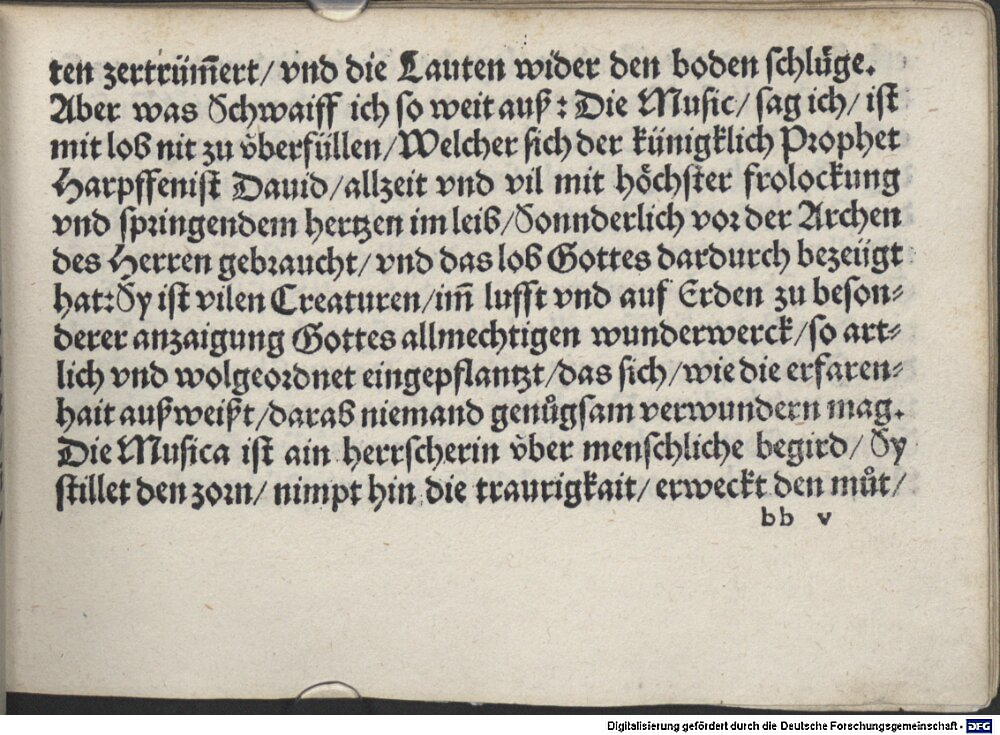 ten zertrüm̃ert/ vnd die Lauten wider den boden schlůge.
Aber was Schwaiff ich so weit auß: Die Music/ sag ich/ ist
mit lob nit zu v̊berfüllen/ Welcher sich der künigklich Prophet
Harpffenist Dauid/ allzeit vnd vil mit höchster frolockung
vnd springendem hertzen im leib/ Sonnderlich vor der Archen
des Herren gebraucht/ vnd das lob Gottes dardurch bezeügt
hat: Sy ist vilen Creaturen/ im̃ lufft vnd auf Erden zu beson⸗
derer anzaigung Gottes allmechtigen wunderwerck/ so art⸗
lich vnd wolgeordnet eingepflantzt/ das sich/ wie die erfaren⸗
hait außweißt/ darab niemand genůgsam verwundern mag.
Die Musica ist ain herrscherin v̊ber menschliche begird/ Sy
stillet den zorn/ nimpt hin die traurigkait/ erweckt den můt/
bb v
Digitalisierung gefördert durch die Deutsche Forschungsgemeinschaft - DFG